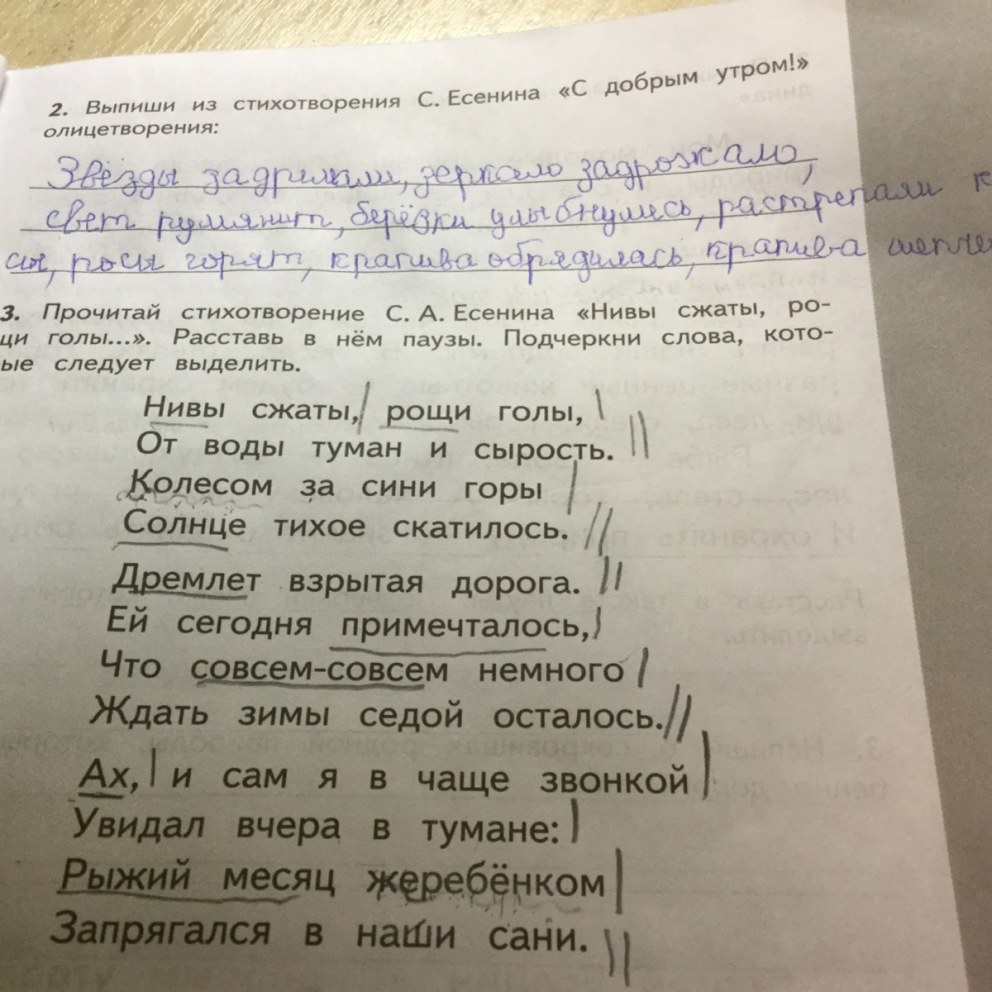 2. Выпиши из стихотворения С. Есенина «С добрым утром!»
олицетворения:
Звёзды задремали, зеркало задрожало,
свет румянит, берёзки улыбнулись, растрепали к
сы, росы горят, крапива обрядилась, крапива шепче
3. Прочитай стихотворение С. А. Есенина «Нивы сжаты, ро-
щи голы...». Расставь в нём паузы. Подчеркни слова, кото-
ые следует выделить.
Нивы сжаты, рощи голы,
От воды туман и сырость.
Колесом за сини горы
Солнце тихое скатилось.
Дремлет взрытая дорога.
Ей сегодня примечталось,
Что совсем-совсем немного
Ждать зимы седой осталось.
Ах, и сам я в чаще звонкой
Увидал вчера в тумане:
Рыжий месяц жеребёнком
Запрягался в наши сани.